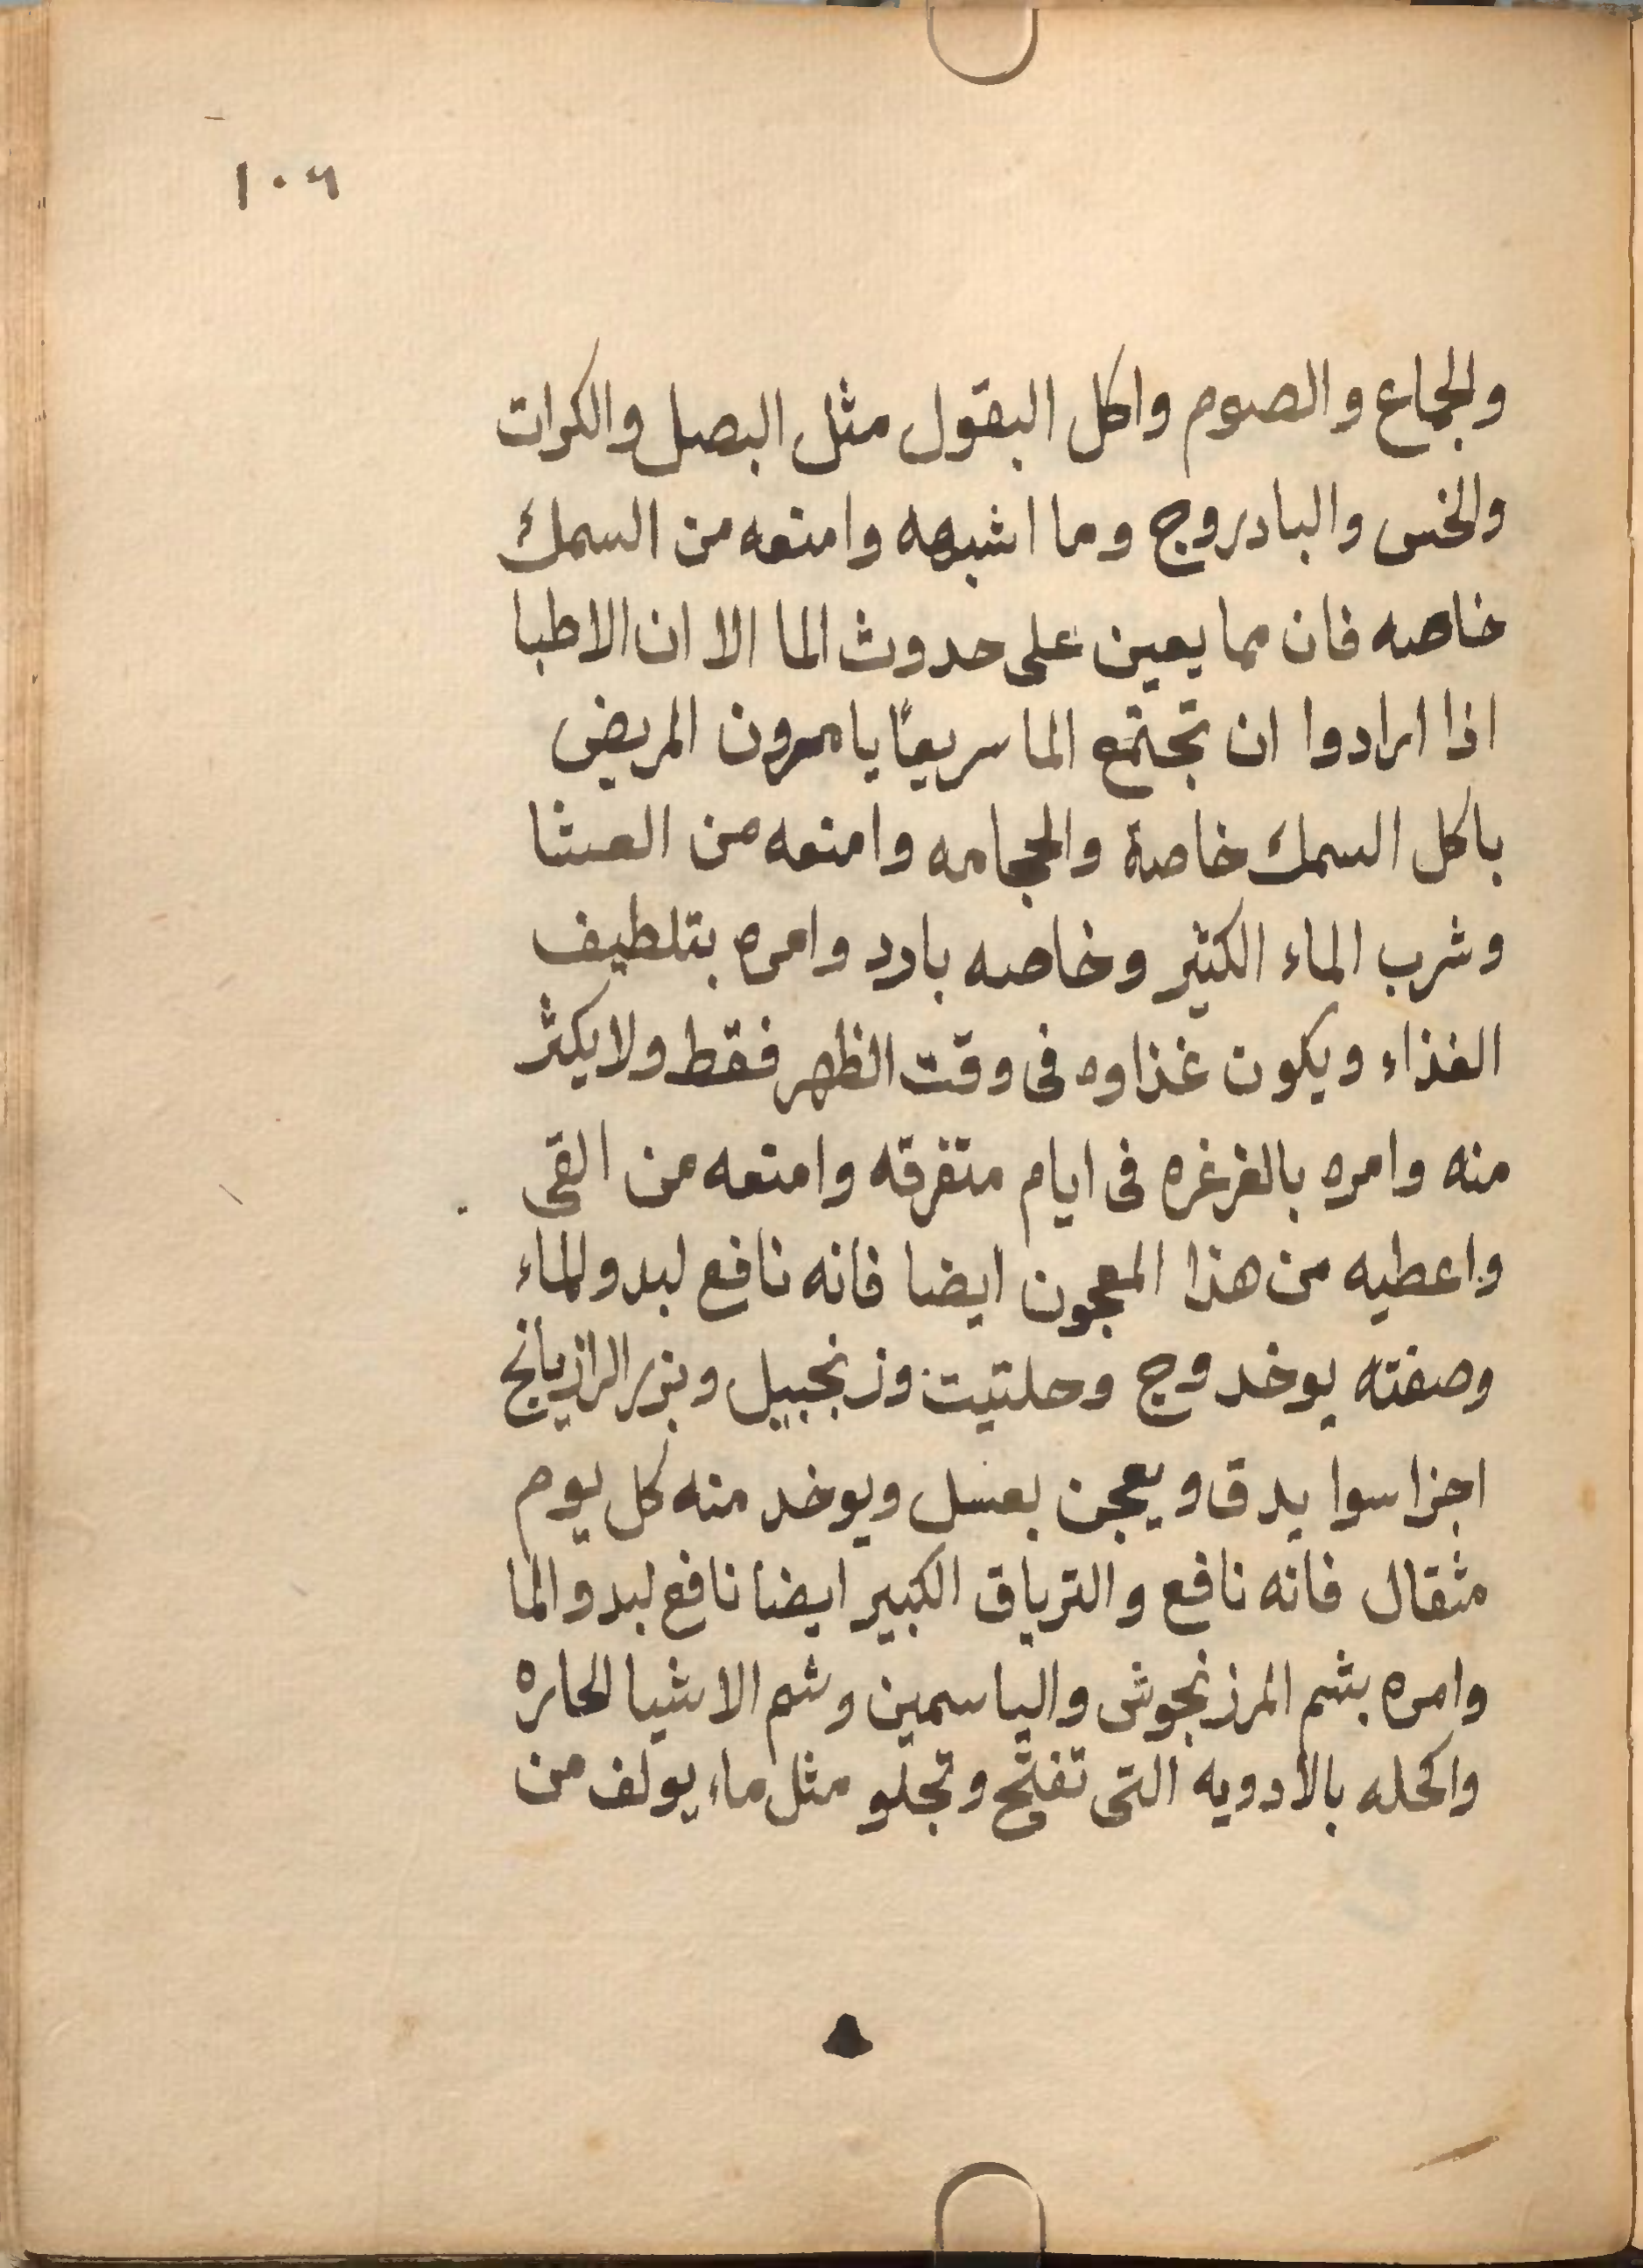 ١٠٦
والجماع والصوم واكل البقول مثل البصل والكرات
والخس والبادروج وما اشبهه وامنعه من السمك
خاصه فان مما يعين على حدوث الما الا ان الاطبا
اذا ارادوا ان تجتمع الما سريعًا يامرون المريض
باكل السمك خاصة والحجامه وامنعه من العشا
وشرب الماء الكثير وخاصه بادد وامره بتلطيف
الغذاء ويكون غذاوه فى وقت الظهر فقط ولا يكثر
منه وامره بالغرغره فى ايام متفرقه وامنعه من القى
واعطيه من هذا المعجون ايضا فانه نافع لبدو الماء
وصفته يوخد وج وحلتيت وزنجبيل وبزر الرازيانج
اجزا سوا يدق ويعجن بعسل ويوخد منه كل يوم
مثقال فانه نافع والترياق الكبير ايضا نافع لبدو الما
وامره بشم المرزنجوش والياسمين وشم الاشيا الحاره
واكحله بالادويه التى تفتح وتجلو مثل ماء يولف من